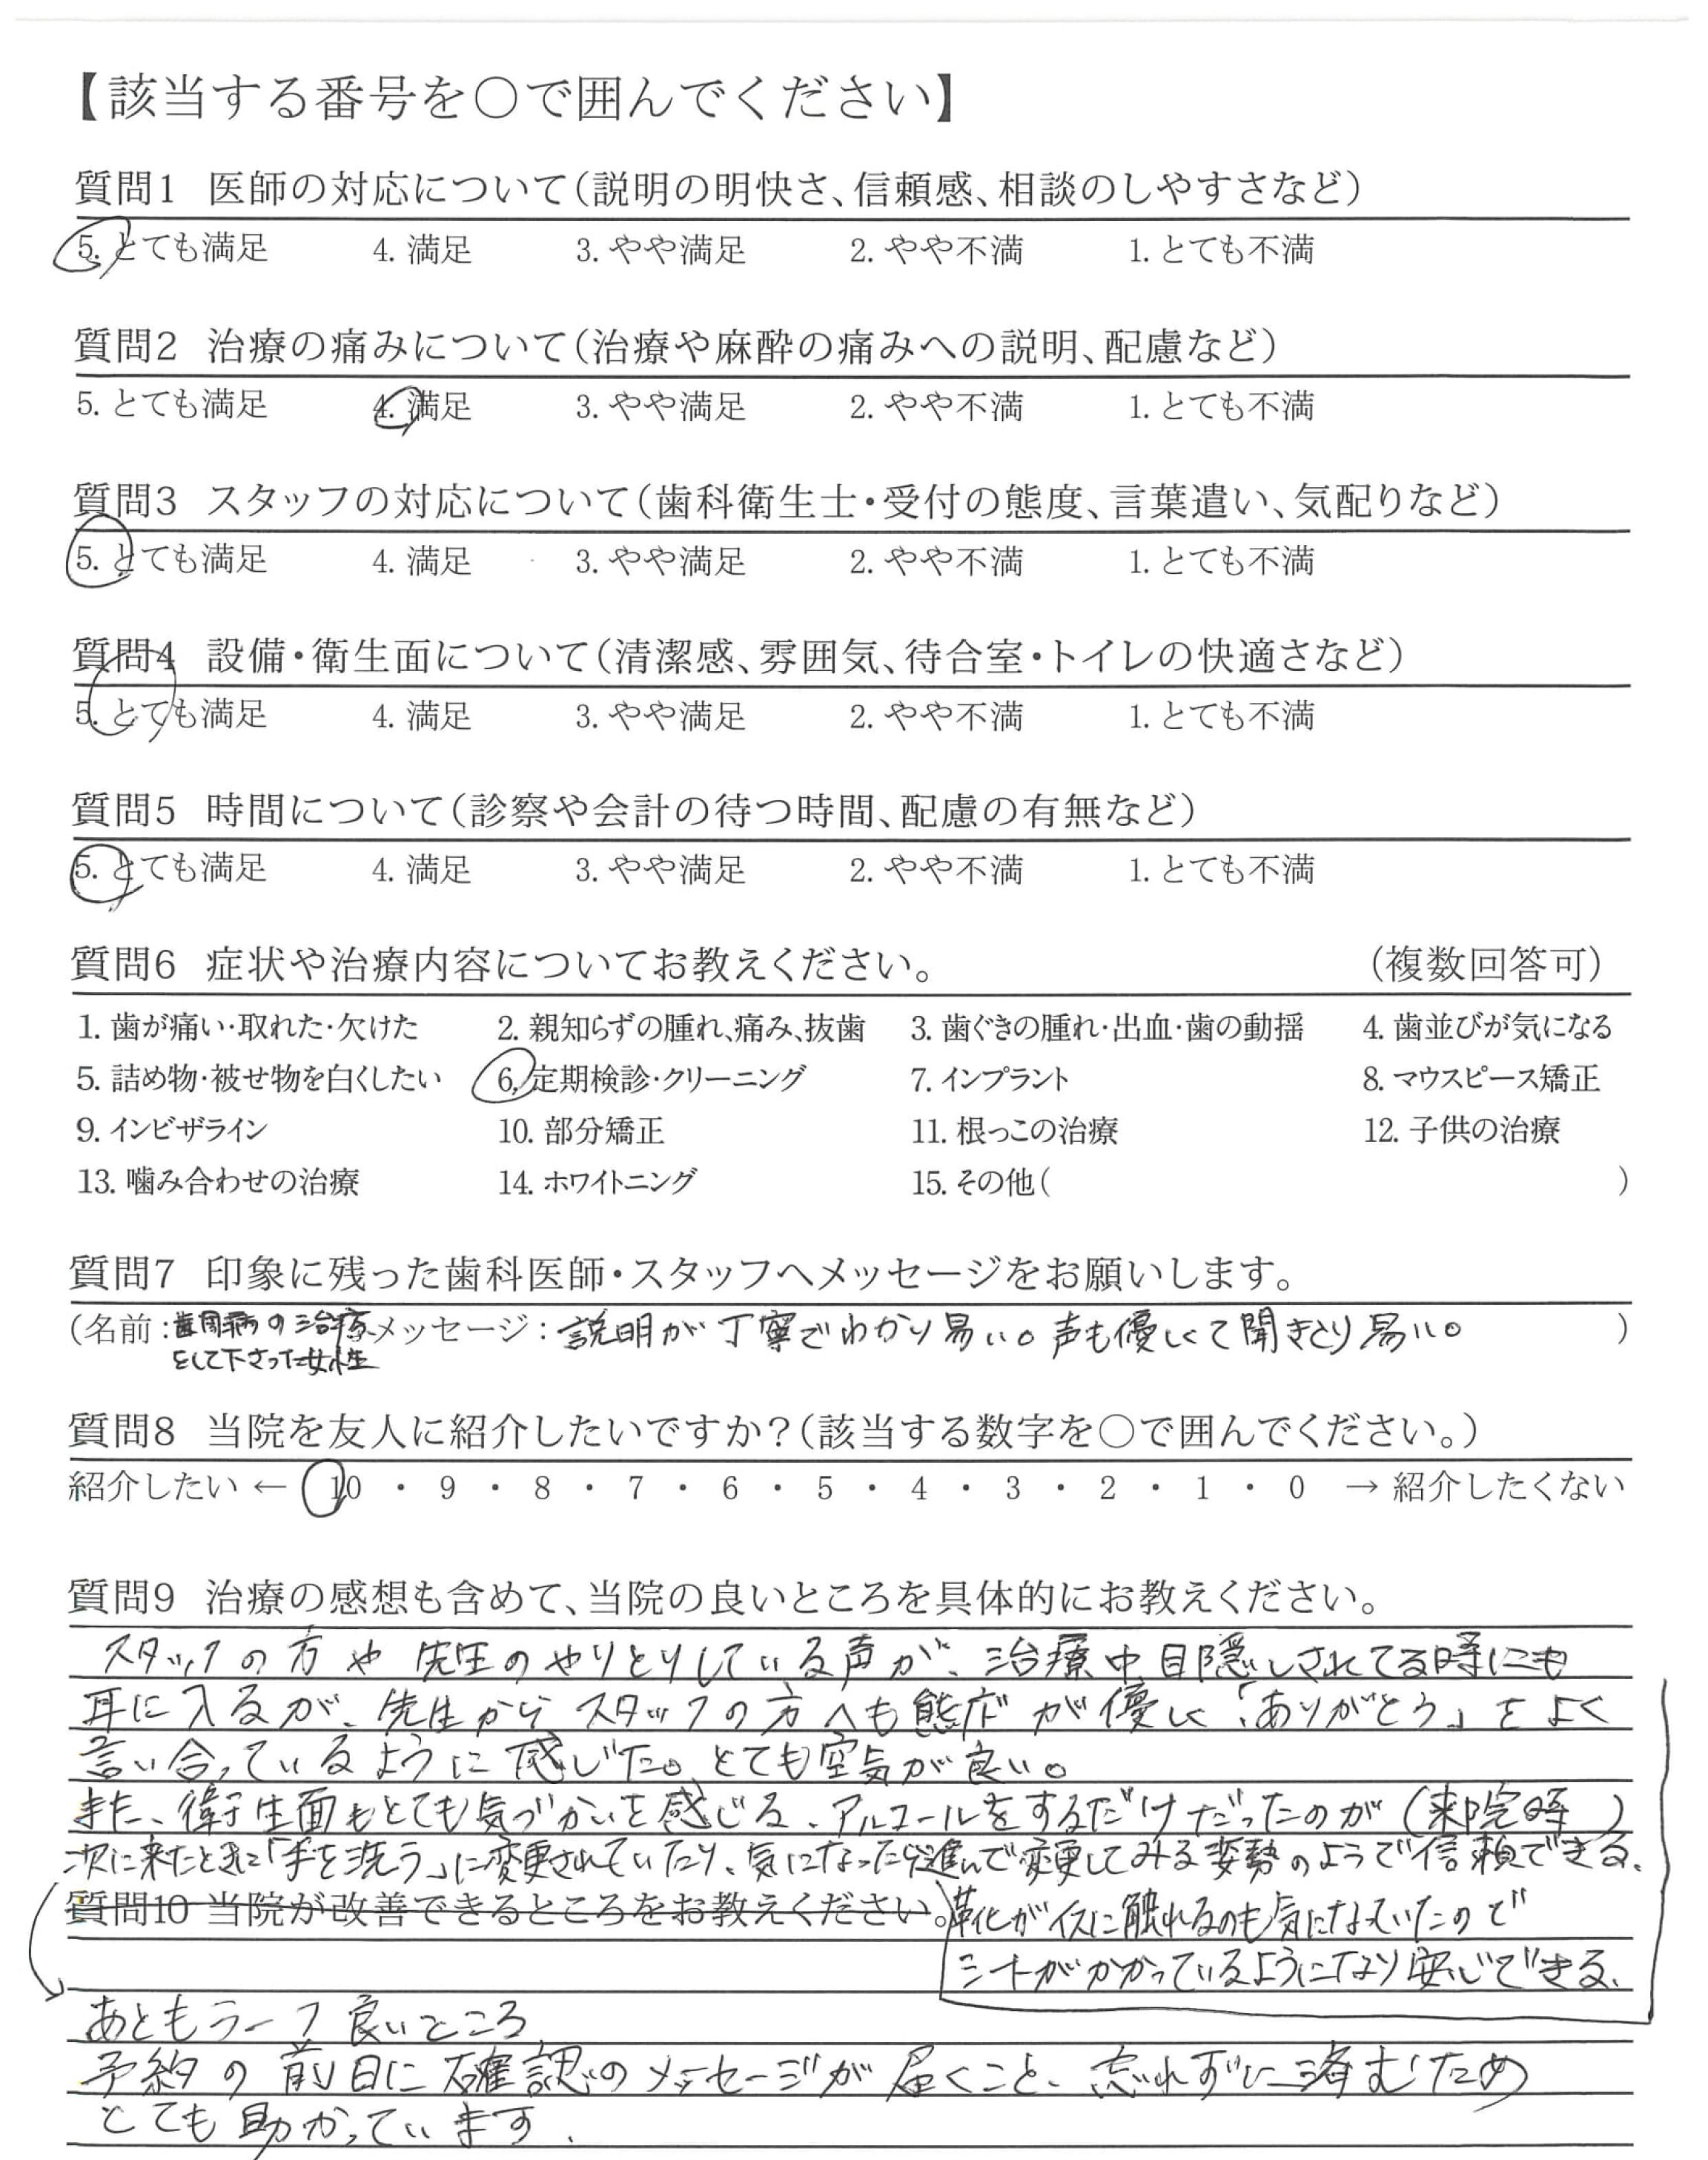 【該当する番号を〇で囲んでください】
質問1 医師の対応について(説明の明快さ、信頼感、相談のしやすさなど)
5. とても満足 4. 満足 3. やや満足 2. やや不満 1. とても不満
質問2 治療の痛みについて(治療や麻酔の痛みへの説明、配慮など)
5. とても満足 4. 満足 3. やや満足 2. やや不満 1. とても不満
質問3 スタッフの対応について(歯科衛生士・受付の態度、言葉遣い、気配りなど)
5. とても満足 4. 満足 3. やや満足 2. やや不満 1. とても不満
質問4 設備・衛生面について(清潔感、雰囲気、待合室・トイレの快適さなど)
5. とても満足 4. 満足 3. やや満足 2. やや不満 1. とても不満
質問5 時間について(診察や会計の待つ時間、配慮の有無など)
5. とても満足 4. 満足 3. やや満足 2. やや不満 1. とても不満
質問6 症状や治療内容についてお教えください。 (複数回答可)
1. 歯が痛い・取れた・欠けた 2. 親知らずの腫れ、痛み、抜歯 3. 歯ぐきの腫れ・出血・歯の動揺 4. 歯並びが気になる
5. 詰め物・被せ物を白くしたい 6. 定期検診・クリーニング 7. インプラント 8. マウスピース矯正
9. インビザライン 10. 部分矯正 11. 根っこの治療 12. 子供の治療
13. 噛み合わせの治療 14. ホワイトニング 15. その他( )
質問7 印象に残った歯科医師・スタッフへメッセージをお願いします。
(名前:歯周病の治療 メッセージ:説明が丁寧でわかり易い。声も優しくて聞きとり易い。 )
をして下さった女性
質問8 当院を友人に紹介したいですか?(該当する数字を〇で囲んでください。)
紹介したい ← 10 ・ 9 ・ 8 ・ 7 ・ 6 ・ 5 ・ 4 ・ 3 ・ 2 ・ 1 ・ 0 → 紹介したくない
質問9 治療の感想も含めて、当院の良いところを具体的にお教えください。
スタッフの方や先生のやりとりしている声が、治療中目隠しされてる時にも
耳に入るが、先生からスタッフの方へも態度が優しく「ありがとう」をよく
言い合っているように感じた。とても空気が良い。
また、衛生面もとても気づかいを感じる。アルコールをするだけだったのが(来院時)
次に来たときに「手を洗う」に変更されていたり、気になったら進んで変更してみる姿勢のようで信頼できる。
質問10 当院が改善できるところをお教えください。
靴がイスに触れるのも気になっていたので
シートがかかっているようになり安心できる。
あともう一つ良いところ
予約の前日に確認のメッセージが届くこと、忘れずに済むため
とても助かっています。